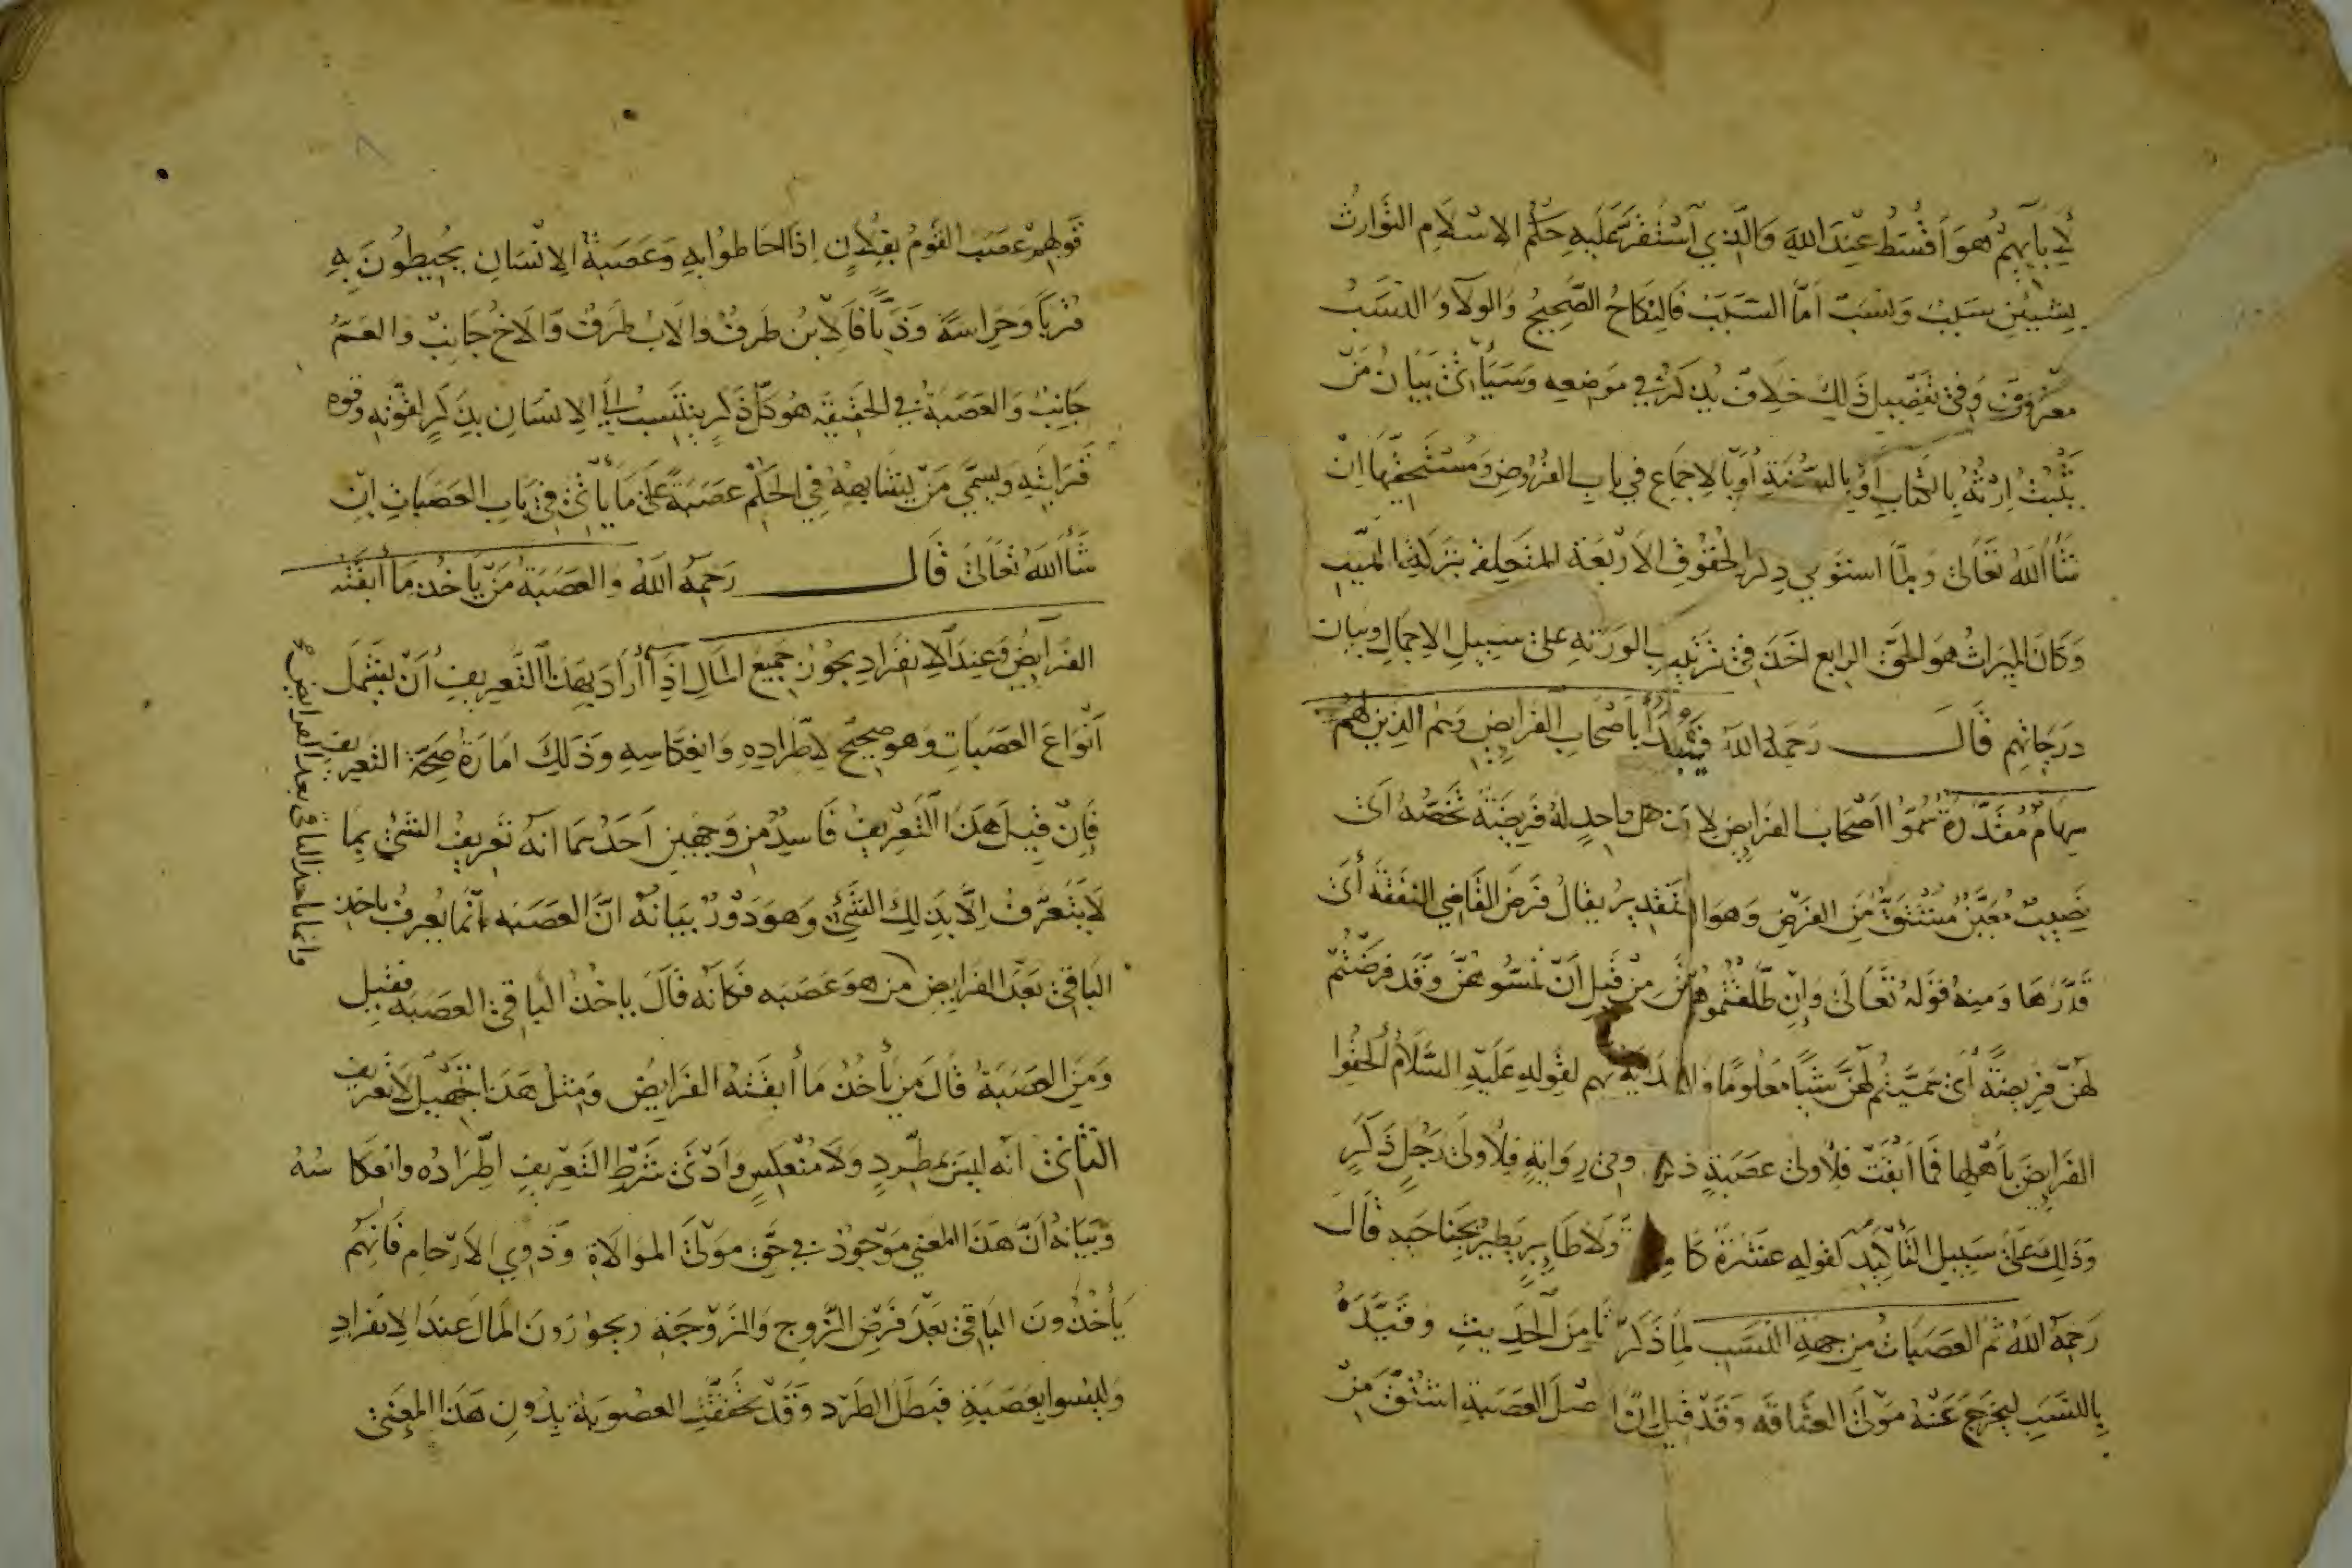 لآبآيهم هو أقسط عند الله والذي استقر عليه حكم الاسلام التوارث
بشيئين سبب ونسب أما السبب فالنكاح الصحيح والولآ والنسب
معروف وفي تفصيل ذلك خلاف يذكر في موضعه وسيأتي بيان من
يثبت ارثه بالكتاب أو بالسنة أو بالاجماع في باب الفروض ومستحقيها ان
شآ الله تعالى ولما استوفي ذكر الحقوق الاربعة المتعلقة بتركة الميت
وكان الميراث هو الحق الرابع اخذ في ترتيب الورثة على سبيل الاجمال وبيان
درجاتهم قال رحمه الله فيبدأ باصحاب الفرايض وهم الذين لهم
سهام مقدرة سموا اصحاب الفرايض لان كل واحد له فريضة تخصه اي
نصيب معين مشتق من الفرض وهو التقدير يقال فرض القاضي النفقة أي
قدرها ومنه قوله تعالى وان طلقتموهن من قبل أن تمسوهن وقد فرضتم
لهن فريضة أي سميتم لهن شيأ معلوما والبداية بهم لقوله عليه السلام ألحقوا
الفرايض بأهلها فما أبقت فلأولى عصبة ذكر وفي رواية فلأولى رجل ذكر
وذلك على سبيل التأكيد لقوله عشرة كاملة ولا طاير يطير بجناحيه قال
رحمه الله ثم العصبات من جهة النسب لما ذكرنا من الحديث وقيده
بالنسب ليخرج عنه مولى العتاقه وقد قيل ان اصل العصبة اشتق من
قولهم عصب القوم بفلان اذا احاطوا به وعصبة الانسان يحيطون به
قربا وحراسة وذبا فالابن طرف والاب طرف والاخ جانب والعم
جانب والعصبة في الحقيقة هو كل ذكر ينتسب إلى الانسان بذكر لقوته وقوه
قرابته ويسمى من يشابهه في الحكم عصبة على ما يأتي في باب العصبات ان
شآ الله تعالى قال رحمه الله والعصبة من يأخذ ما أبقته
الفرآيض وعند الانفراد يحوز جميع المال اذا أراد بهذا التعريف أن يشمل
أنواع العصبات وهو صحيح لاطراده وانعكاسه وذلك امارة صحة التعريف
فان قيل هذا التعريف فاسد من وجهين احدهما انه تعريف الشئ بما
لا يتعرف إلا بذلك الشئ وهو دور بيانه ان العصبه انما يعرف بأخذ
الباقي بعد الفرايض من هو عصبه فكأنه قال يأخذ الباقي العصبه فقيل
ومن العصبة قال من يأخذ ما أبقته الفرايض ومثل هذا تجهيل لا تعريف
الثاني انه ليس بمطرد ولا منعكس وأدنى شرط التعريف اطراده وانعكاسه
وبيانه أن هذا المعنى موجود في حق مولى الموالاة وذوي الارحام فانهم
يأخذون الباقي بعد فرض الزوج والزوجة ويحوزون المال عند الانفراد
وليسوا بعصبة فبطل الطرد وقد تحققت العصوبة بدون هذا المعنى
وانما ياخذ الباقي بعد الفرايض